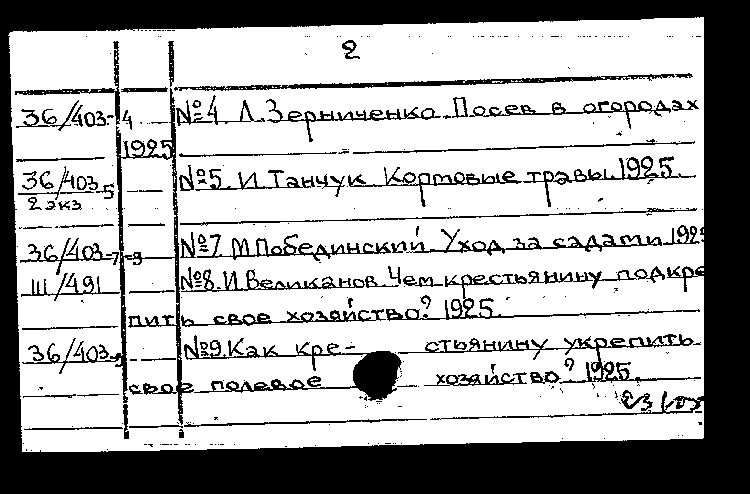 2
36/403-4 №4. Л. Зерниченко Посев в огородах
1925
36/403-5 №5. И Танчук Кормовые травы 1925.
2 экз
36/403-7-9 №7 М.Побединский. Уход за садами 192
III/491 №8. И.Великанов. Чем крестьянину подкре
пить свое хозяйство? 1925.
36/403-9 №9. Как кре- стьянину укрепить
свое полевое хозяйство? 1925.